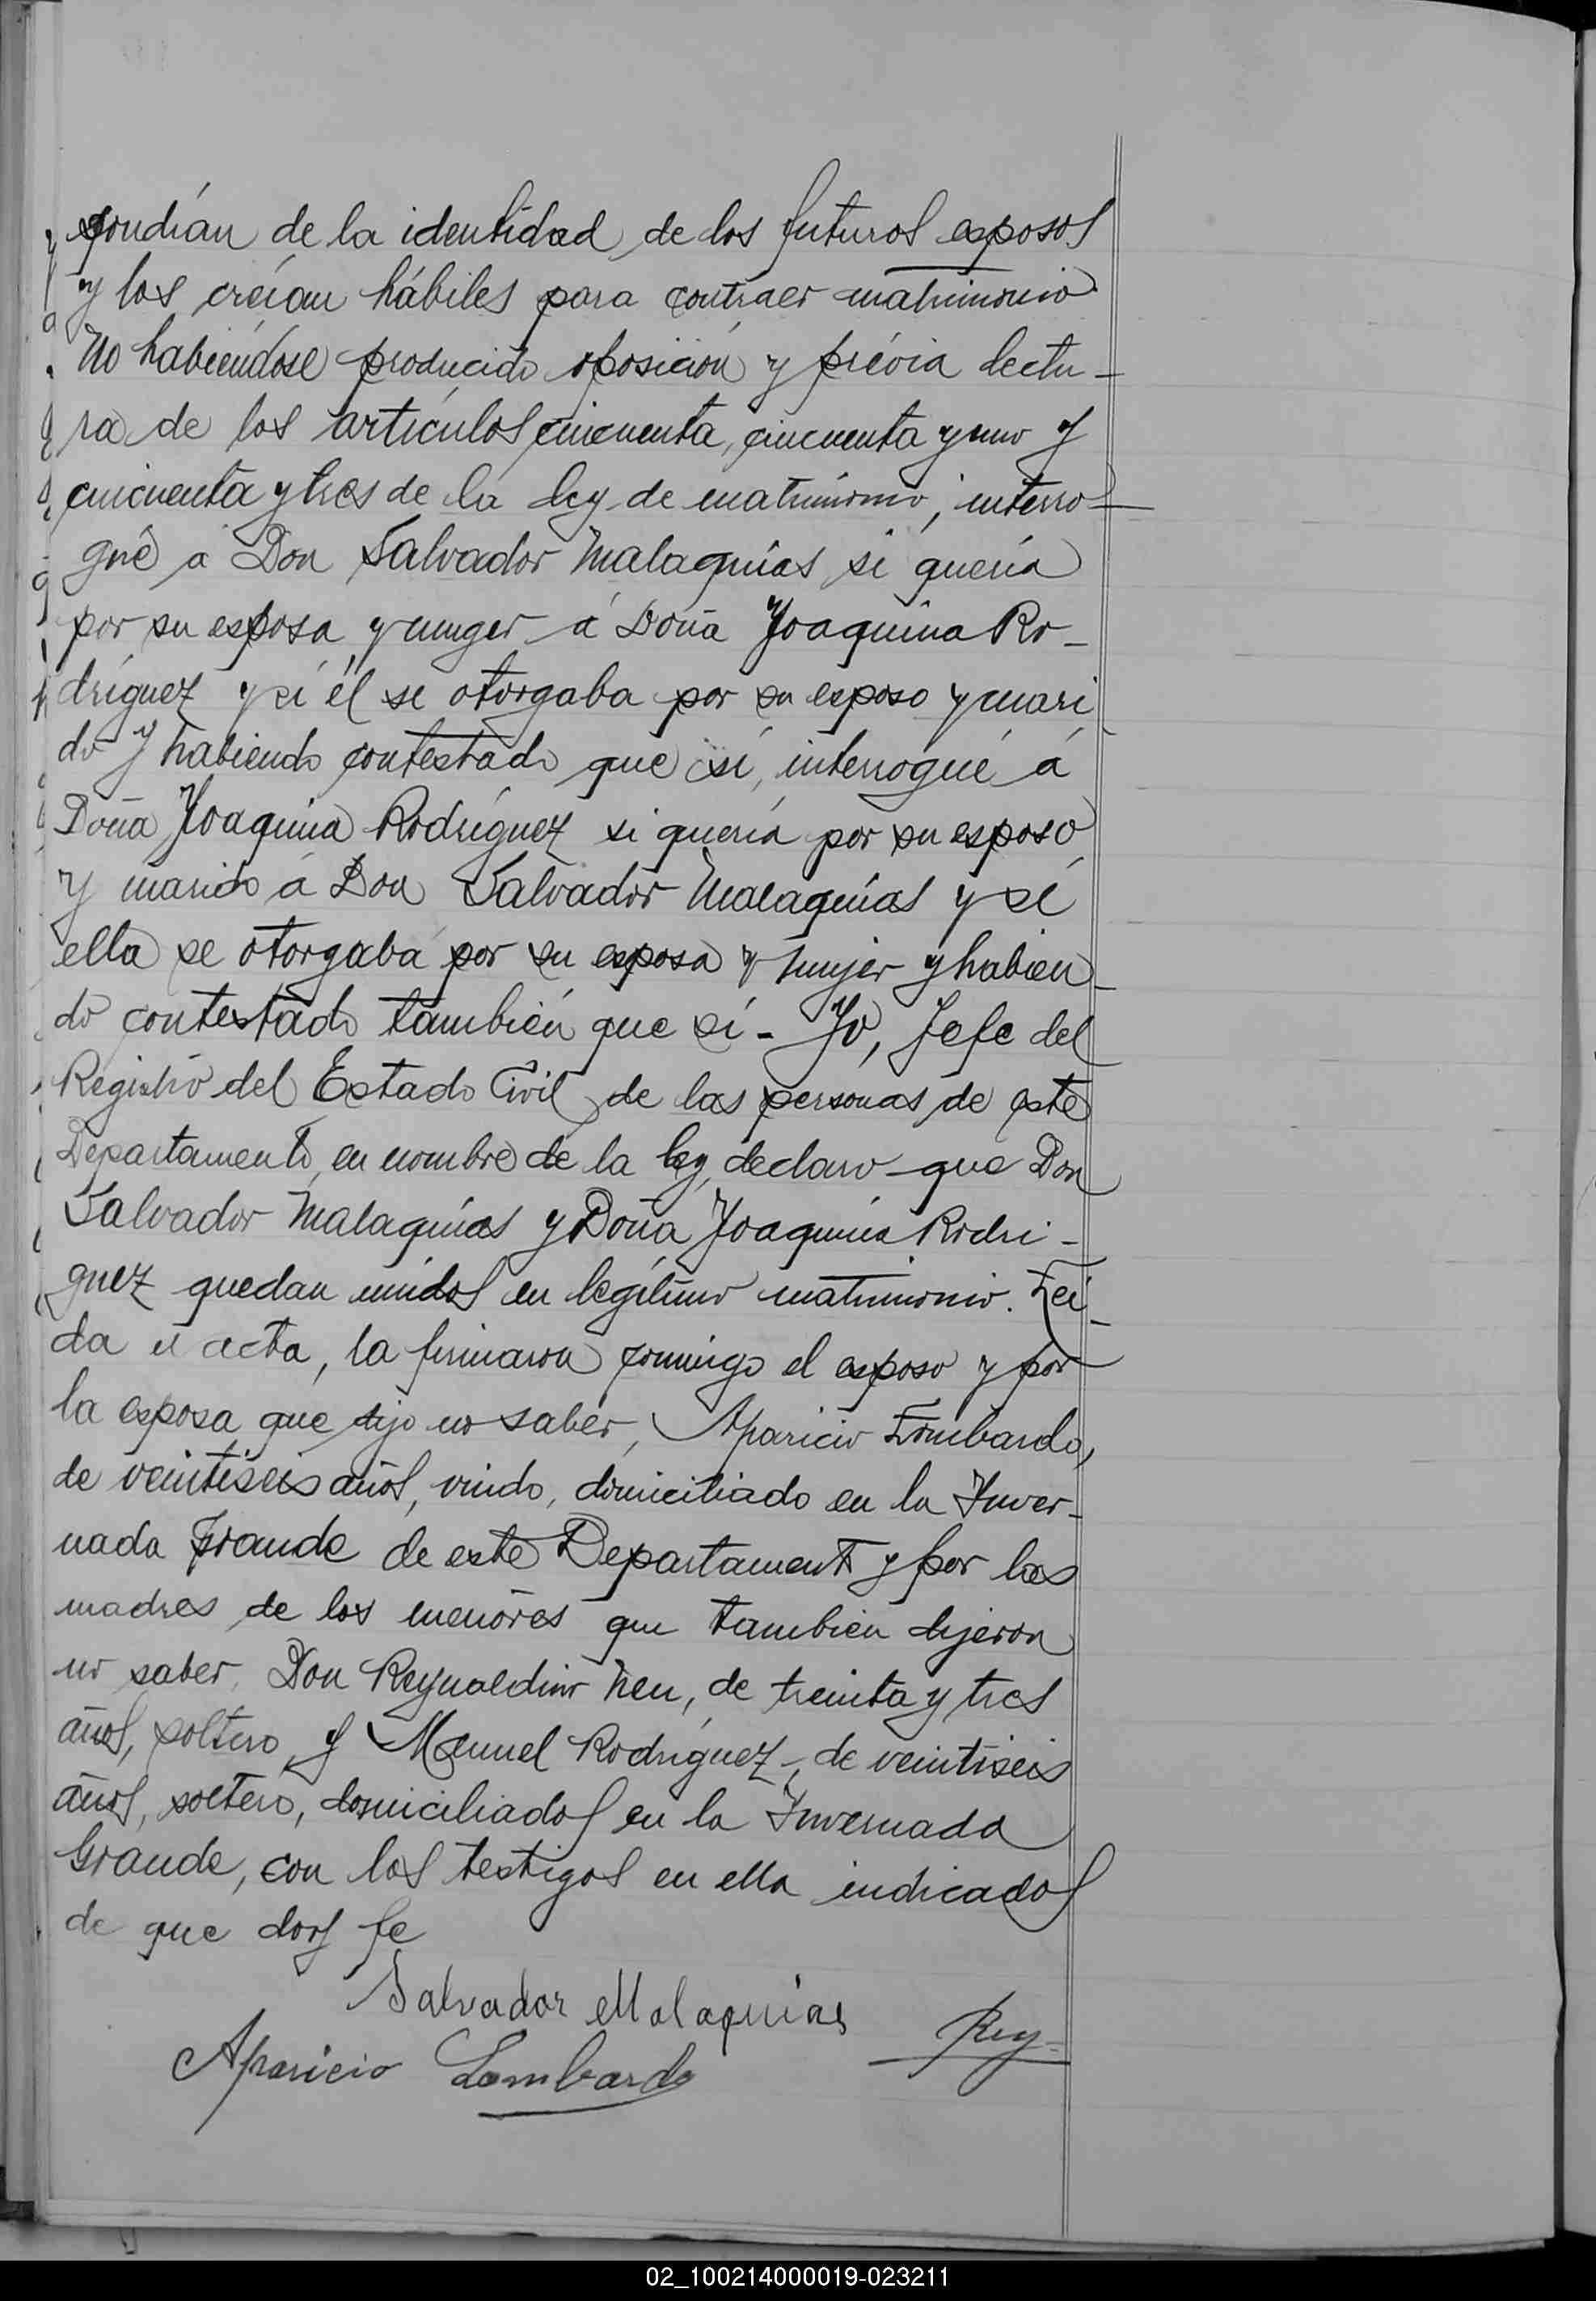 pondían de la identidad de los futuros esposos
y los creían hábiles para contraer matrimonio
No habiéndose producido oposición y prévia lectu-
ra de los artículos cincuenta, cincuenta y uno y
cincuenta y tres de la ley de matrimonio, interro-
gué a Don Salvador Malaquías si quería
por su esposa y muger á Doña Joaquina Ro-
dríguez y si él se otorgaba por su esposo y mari
do y habiendo contestado que sí, interrogué á
Doña Joaquina Rodríguez si quería por su esposo
y marido á Don Salvador Malaquías y si
ella se otorgaba por su esposa y mujer y habien-
do contestado también que sí - Yo, Jefe del
Registro del Estado Civil de las personas de este
Departamento, en nombre de la ley, declaro que Don
Salvador Malaquías y Doña Joaquina Rodri-
guez quedan unidos en legítimo matrimonio. Lei-
da el acta, la firmaron conmigo el esposo y por
la esposa que dijo no saber, Aparicio Lombardo,
de veintiseis años, viudo, domiciliado en la Inver-
nada Grande de este Departamento y por las
madres de los menores que también dijeron
no saber, Don Reynaldino Neu, de treinta y tres
años, soltero y Manuel Rodríguez, de veintiseis
años, soltero, domiciliados en la Invernada
Grande, con los testigos en ella indicados
de que doy fe
Salvador Malaquias
Rey
Aparicio Lombardo
02_100214000019-023211